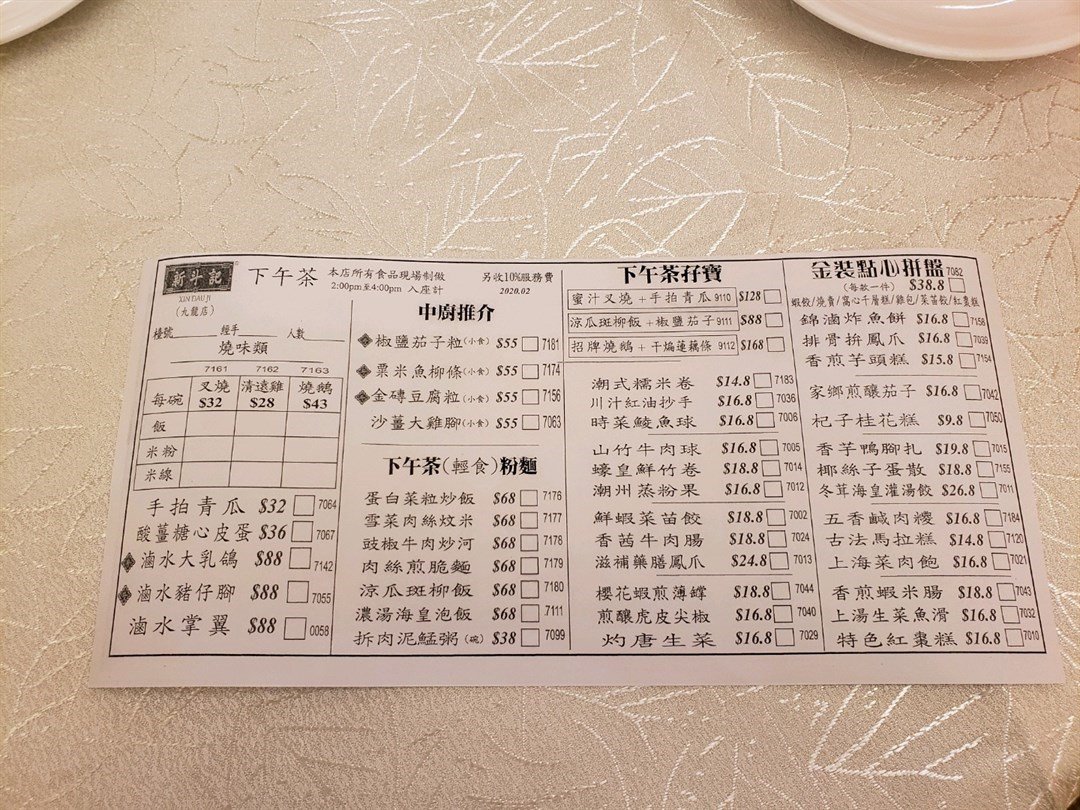 新斗記
XIN DAU JI
(九龍店)
下午茶
本店所有食品現場制做
2:00pm至4:00pm 入座計
另收10%服務費
2020.02
檯號 經手 人數
燒味類
7161 7162 7163
叉燒 清遠雞 燒鵝
每碗 $32 $28 $43
飯
米粉
米線
手拍青瓜 $32 7064
酸薑糖心皮蛋 $36 7067
滷水大乳鴿 $88 7142
滷水豬仔腳 $88 7055
滷水掌翼 $88 0058
中廚推介
椒鹽茄子粒(小食) $55 7181
粟米魚柳條(小食) $55 7174
金磚豆腐粒(小食) $55 7156
沙薑大雞腳(小食) $55 7063
下午茶(輕食)粉麵
蛋白菜粒炒飯 $68 7176
雪菜肉絲炆米 $68 7177
豉椒牛肉炒河 $68 7178
肉絲煎脆麵 $68 7179
涼瓜斑柳飯 $68 7180
濃湯海皇泡飯 $68 7111
拆肉泥鯭粥(碗) $38 7099
下午茶孖寶
蜜汁叉燒+手拍青瓜 9110 $128
涼瓜斑柳飯+椒鹽茄子 9111 $88
招牌燒鵝+干煸蓮藕條 9112 $168
潮式糯米卷 $14.8 7183
川汁紅油抄手 $16.8 7036
時菜鯪魚球 $16.8 7006
山竹牛肉球 $16.8 7005
蠔皇鮮竹卷 $18.8 7014
潮州蒸粉果 $16.8 7012
鮮蝦菜苗餃 $18.8 7002
香茜牛肉腸 $18.8 7024
滋補藥膳鳳爪 $24.8 7013
櫻花蝦煎薄罉 $18.8 7044
煎釀虎皮尖椒 $16.8 7040
灼唐生菜 $16.8 7029
金裝點心拼盤 7082
(每款一件) $38.8
蝦餃/燒賣/窩心千層糕/雞包/菜苗餃/紅棗糕
錦滷炸魚餅 $16.8 7158
排骨拼鳳爪 $16.8 7039
香煎芋頭糕 $15.8 7154
家鄉煎釀茄子 $16.8 7042
杞子桂花糕 $9.8 7050
香芋鴨腳扎 $19.8 7015
椰絲子蛋散 $18.8 7155
冬茸海皇灌湯餃 $26.8 7011
五香鹹肉糭 $16.8 7184
古法馬拉糕 $14.8 7120
上海菜肉飽 $16.8 7021
香煎蝦米腸 $18.8 7043
上湯生菜魚滑 $16.8 7032
特色紅棗糕 $16.8 7010